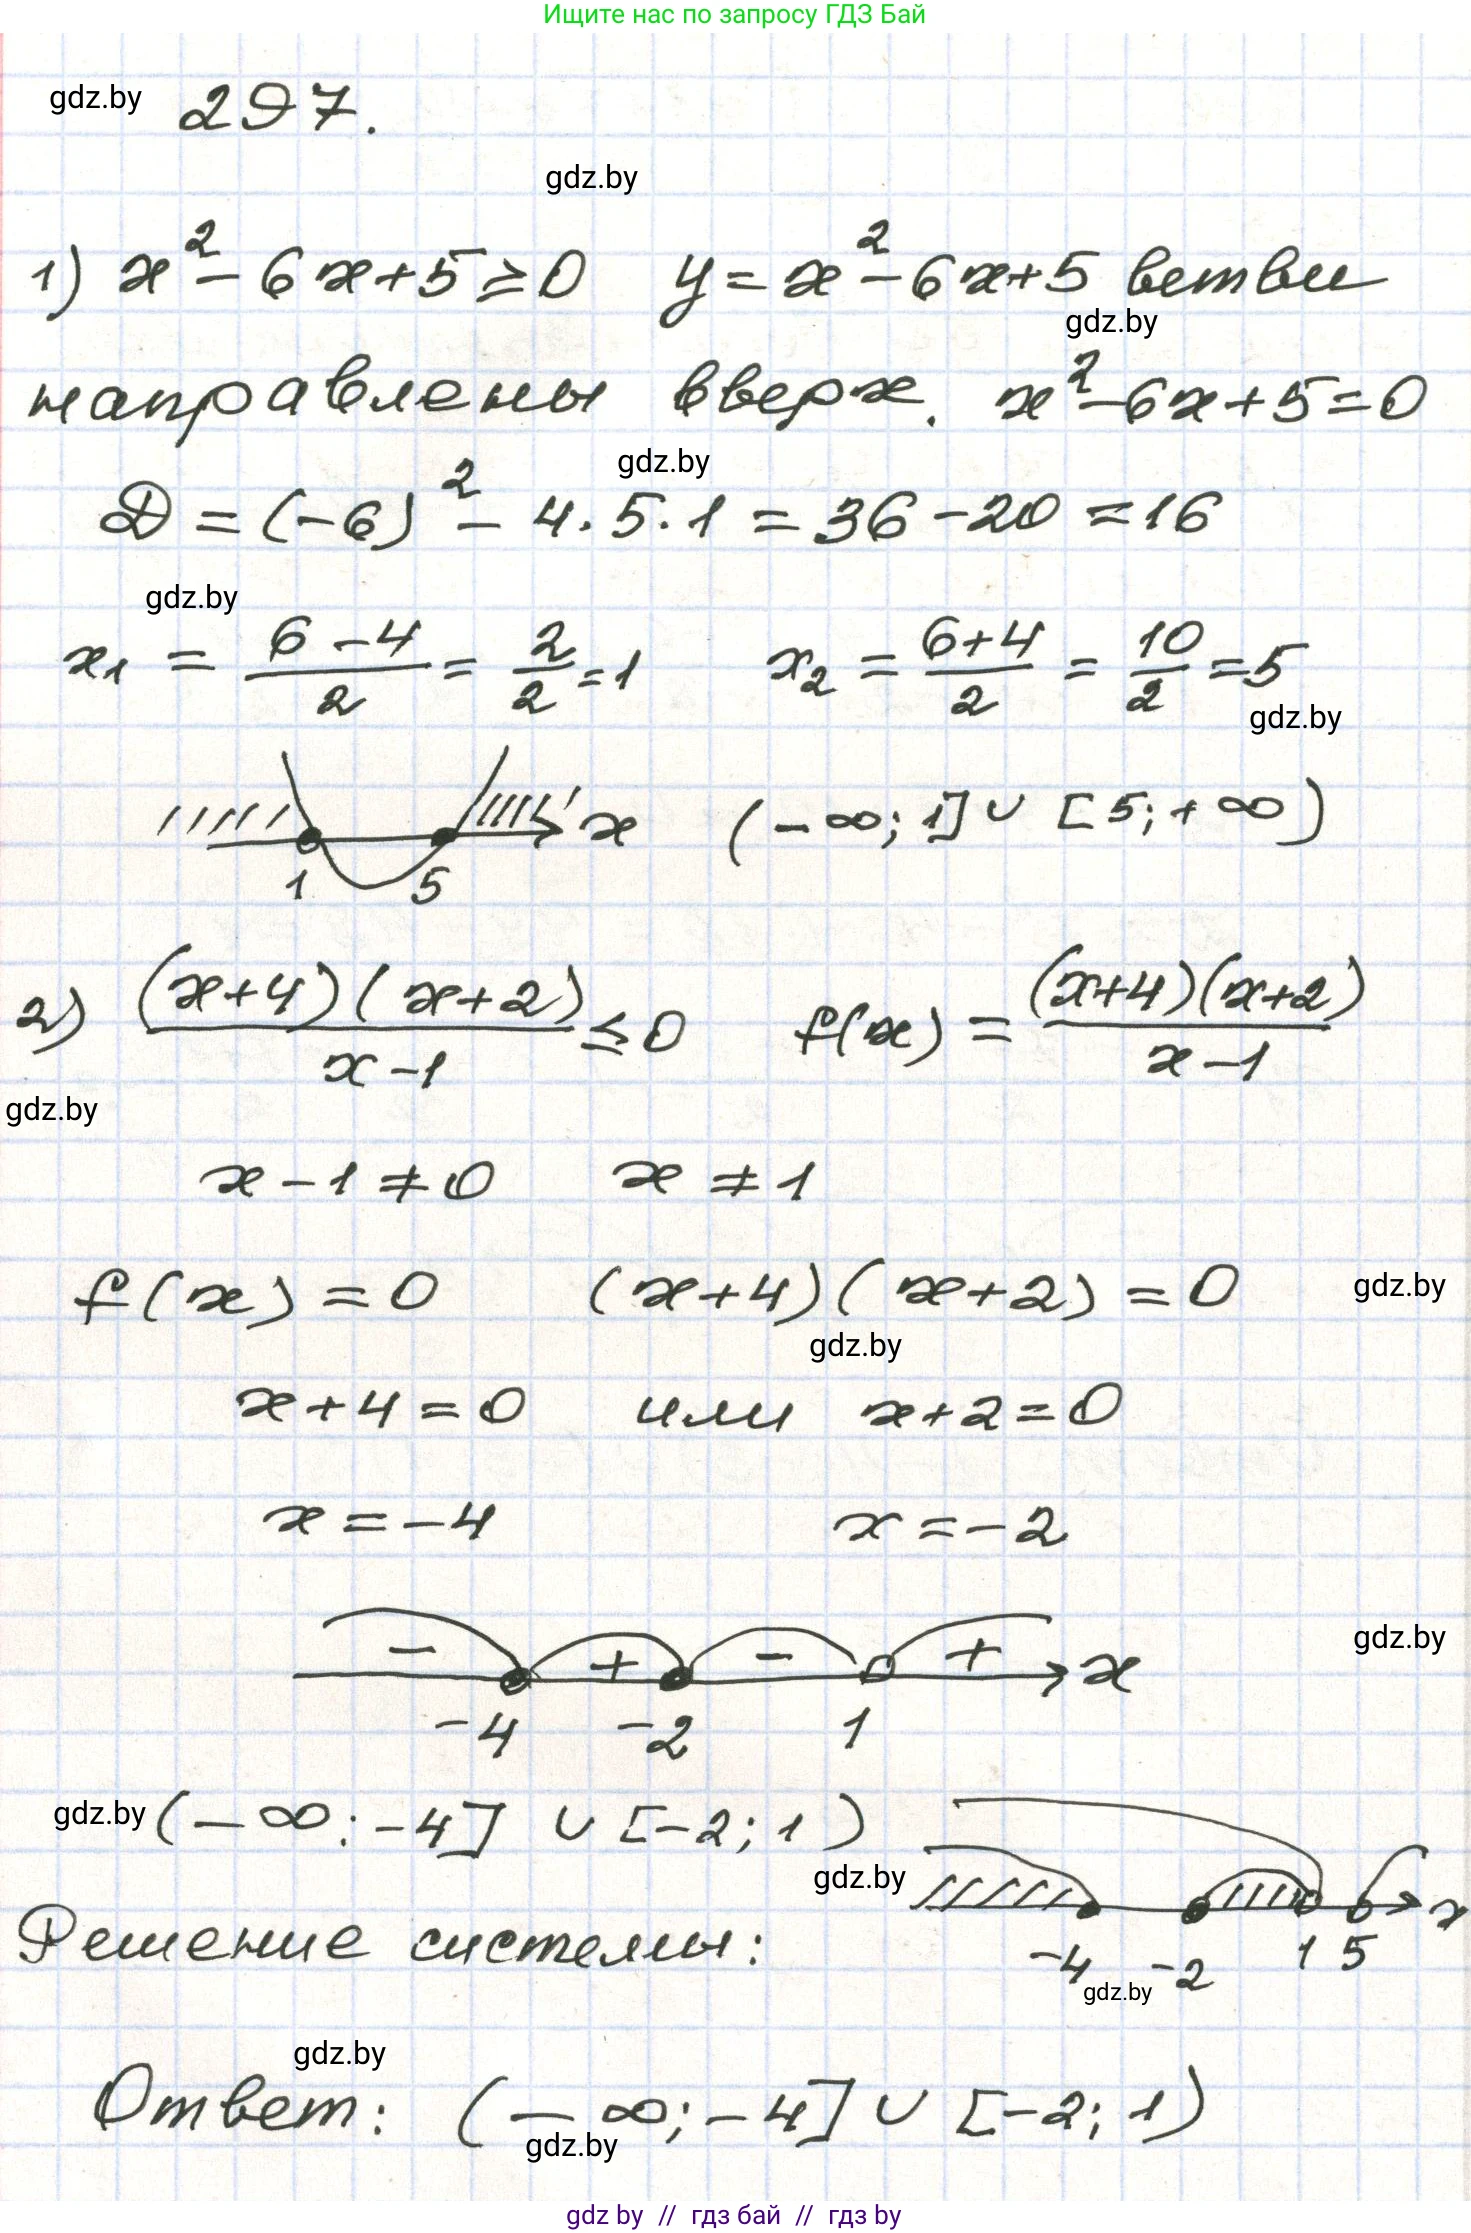 Ищите нас по запросу ГДЗ Бай
gdz.by 297.
gdz.by
1) x² - 6x + 5 ≥ 0 y = x² - 6x + 5 ветви
gdz.by
направлены вверх. x² - 6x + 5 = 0
gdz.by
D = (-6)² - 4 · 5 · 1 = 36 - 20 = 16
gdz.by
x₁ = (6 - 4)/2 = 2/2 = 1 x₂ = (6+4)/2 = 10/2 = 5
gdz.by
x (-∞; 1] ∪ [5; +∞)
1 5
2) (x+4)(x+2)/(x-1) ≤ 0 f(x) = (x+4)(x+2)/(x-1)
gdz.by
x - 1 ≠ 0 x ≠ 1
f(x) = 0 (x+4)(x+2) = 0 gdz.by
gdz.by
x + 4 = 0 или x + 2 = 0
x = -4 x = -2
- + - + x gdz.by
-4 -2 1
gdz.by (-∞; -4] ∪ [-2; 1)
gdz.by
x
Решение системы: -4 -2 1 5
gdz.by
gdz.by
Ответ: (-∞; -4] ∪ [-2; 1)
gdz.by
gdz by // гдз бай // гдз by